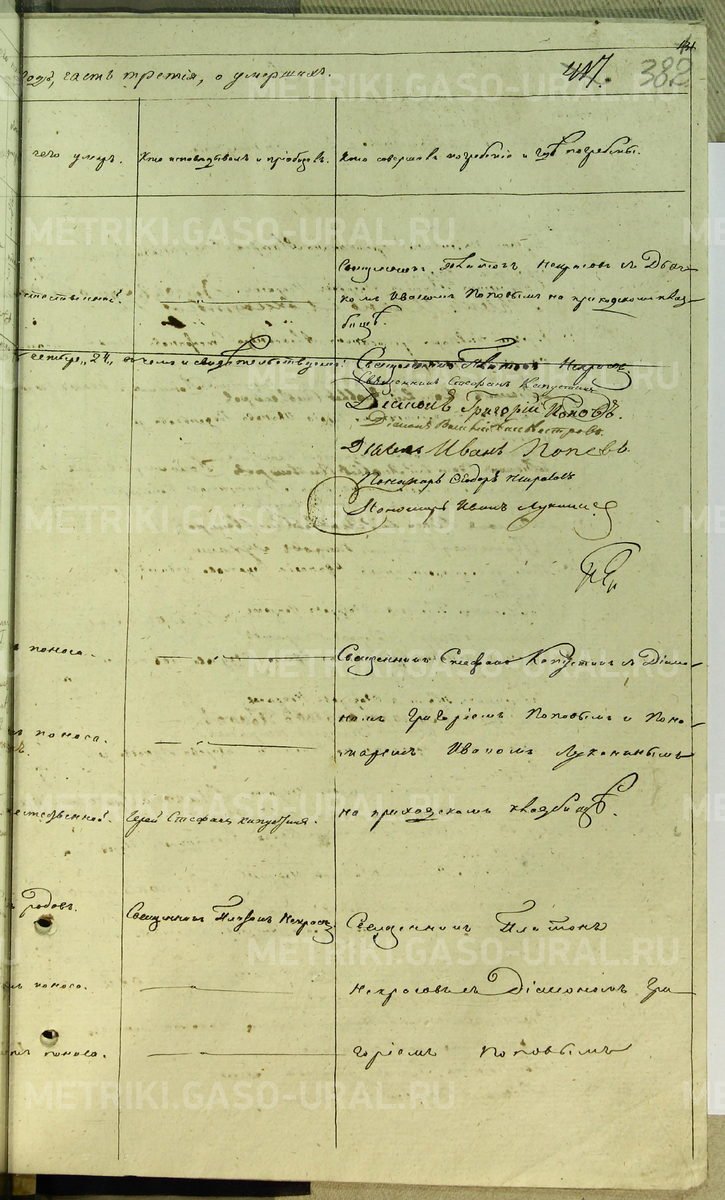 годъ, часть третія, о умершихъ.
447. 382
чего умеръ. Кто исповѣдывалъ и пріобщалъ. Кто совершалъ погребеніе и гдѣ погребены.
Священникъ Платонъ Некрасовъ съ Дьяч-
естественной. комъ Иваномъ Поповымъ на приходскомъ клад-
бищѣ.
24, въ чемъ и свидѣтельствуемъ: Священникъ Платонъ Некрасовъ
Священникъ Стефанъ Капустинъ
Діаконъ Григорій Поповъ.
Діаконъ
Дьячекъ Иванъ Поповъ.
Пономарь Ѳеодоръ
Пономарь Иванъ Лукинъ
поноса. Священникъ Стефанъ Капустинъ съ Діако-
номъ Григоріемъ Поповымъ и Поно-
поноса. маремъ Иваномъ Луканинымъ
естественной. Іерей Стефанъ Капустинъ. на приходскомъ кладбищѣ.
родовъ. Священникъ Платонъ Некрасов Священникъ Платонъ
поноса. Некрасовъ съ Діакономъ Гри-
поноса. горіемъ Поповымъ
METRIKI.GASO-URAL.RU